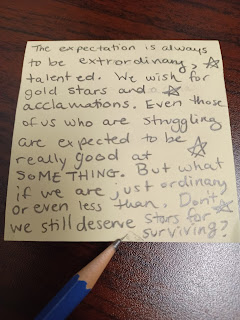 The expectation is always
to be extrordinary,
talented. We wish for
gold stars and
acclamations. Even those
of us who are struggling
are expected to be
really good at
SOMETHING. But what
if we are just ordinary
or even less than. Don't
we still deserve stars for
surviving?